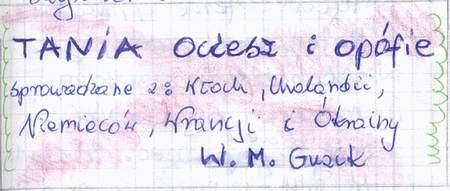 TANIA Odiesz i opófie
sprowadzane z: Kłoch, Cholandii,
Niemieców, Wrancji i Ókrainy
W. M. Guzik